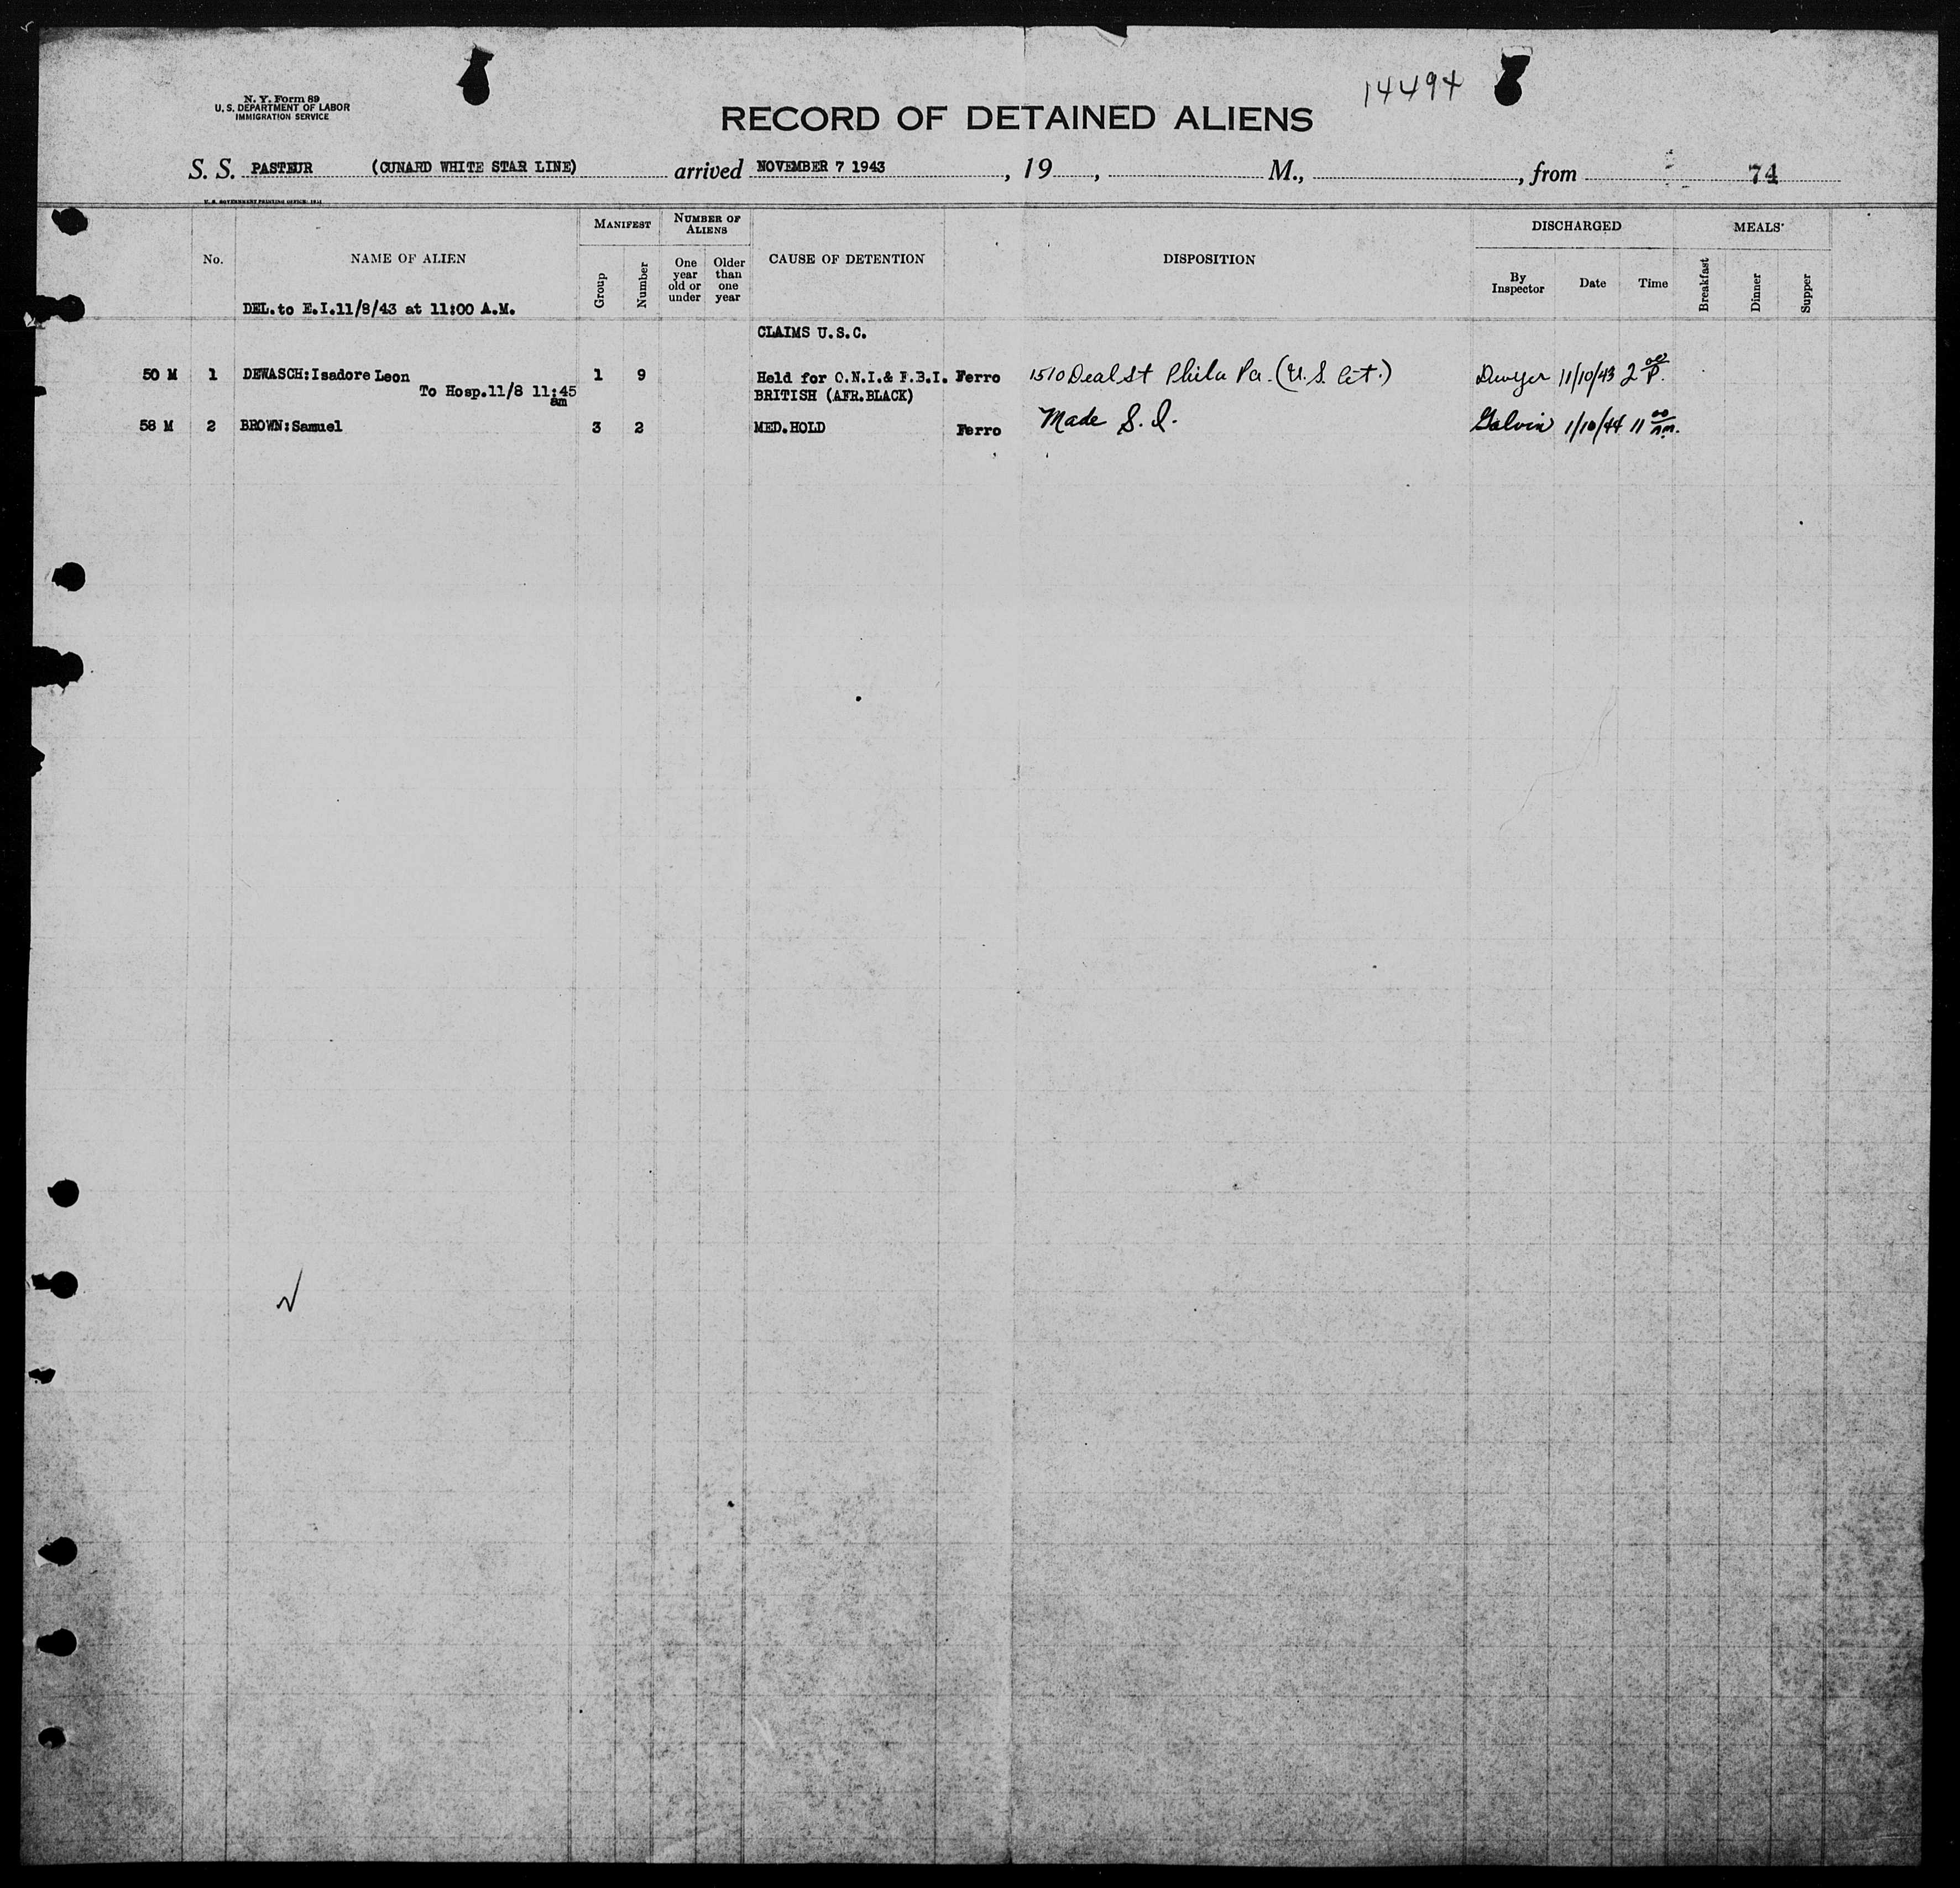 14494
N. Y. Form 89
U. S. DEPARTMENT OF LABOR
IMMIGRATION SERVICE
RECORD OF DETAINED ALIENS
S. S. PASTEUR (CUNARD WHITE STAR LINE) arrived NOVEMBER 7 1943, 19, M., from 74
U. S. GOVERNMENT PRINTING OFFICE:
No. NAME OF ALIEN MANIFEST Group Number NUMBER OF ALIENS One year old or under Older than one year CAUSE OF DETENTION DISPOSITION DISCHARGED By Inspector Date Time MEALS Breakfast Dinner Supper
DEL.to E.I.11/8/43 at 11:00 A.M.
CLAIMS U.S.C.
50 M 1 DEWASCH:Isadore Leon 1 9 Held for O.N.I.& F.B.I. Ferro 1510 Deal St Phila Pa. (U.S. Cit.) Dwyer 11/10/43 2 00 P.
To Hosp.11/8 11:45 am BRITISH (AFR.BLACK)
58 M 2 BROWN:Samuel 3 2 MED.HOLD Ferro Made S.I. Galvin 1/10/44 11 00 am.